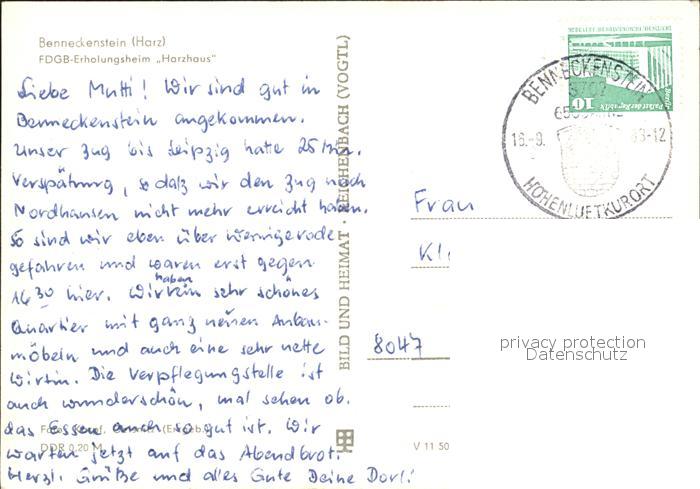 Benneckenstein (Harz)
FDGB-Erholungsheim „Harzhaus"
Liebe Mutti! Wir sind gut in
Benneckenstein angekommen.
Unser Zug bis Leipzig hatte 25 Min.
Verspätung, so daß wir den Zug nach
Nordhausen nicht mehr erreicht haben.
So sind wir eben über Wernigerode
gefahren und waren erst gegen
16 30 hier. Wir haben ein sehr schönes
Quartier mit ganz neuen Anbau-
möbeln und auch eine sehr nette
Wirtin. Die Verpflegungstelle ist
auch wunderschön, mal sehen ob
das Essen auch so gut ist. Wir
warten jetzt auf das Abendbrot.
Herzl. Grüße und alles Gute Deine Dorli
DDR 0,20 M
BILD UND HEIMAT · REICHENBACH (VOGTL)
V 11 50
BENNECKENSTEIN
3702
16.-9.
83-12
HÖHENLUFTKURORT
DEUTSCHE DEMOKRATISCHE REPUBLIK
10
Berlin
Palast der Republik
Frau
8047
privacy protection
Datenschutz